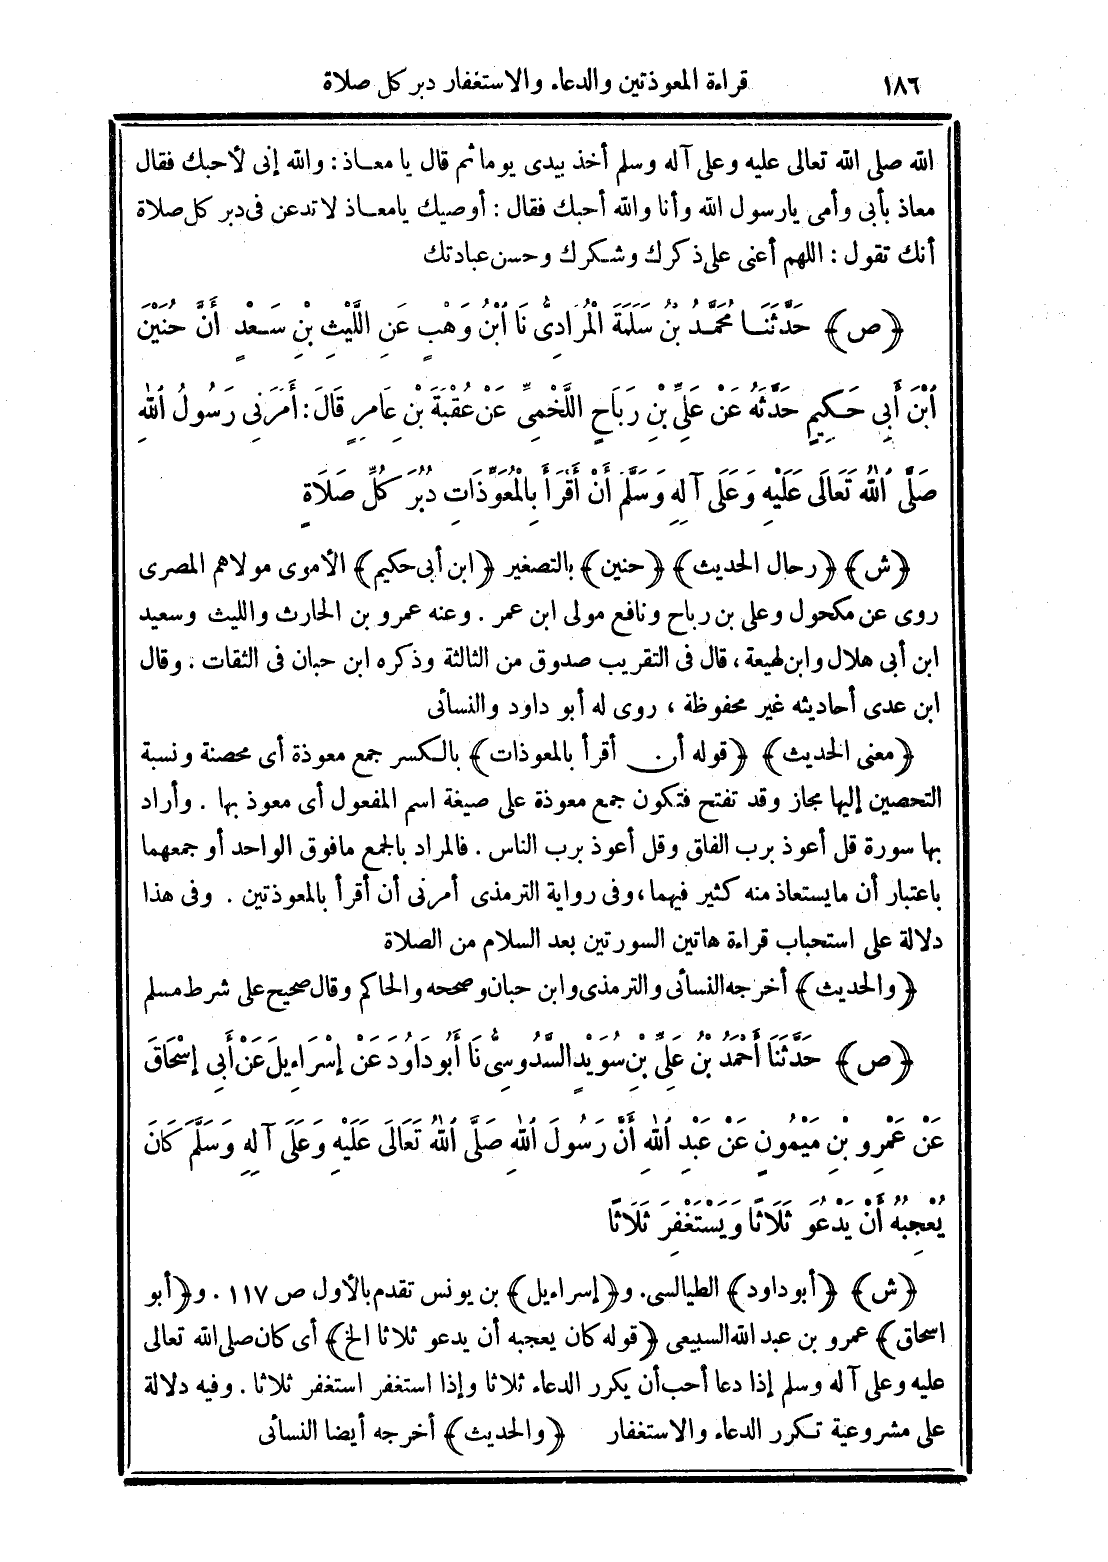 ١٨٦ قراءة المعوذتين والدعاء والاستغفار دبر كل صلاة
الله صلى الله تعالى عليه وعلى آله وسلم أخذ بيدى يوما ثم قال يا معاذ : والله إنى لأحبك فقال
معاذ بأبى وأمى يارسول الله وأنا والله أحبك فقال : أوصيك يامعاذ لا تدعن فى دبر كل صلاة
أنك تقول : اللهم أعنى على ذكرك وشكرك وحسن عبادتك
﴿ص﴾ حَدَّثَنَا مُحَمَّدُ بْنُ سَلَمَةَ الْمُرَادِىُّ نَا ابْنُ وَهْبٍ عَنِ اللَّيْثِ بْنِ سَعْدٍ أَنَّ حُنَيْنَ
ابْنَ أَبِى حَكِيمٍ حَدَّثَهُ عَنْ عَلِىِّ بْنِ رَبَاحٍ اللَّخْمِىِّ عَنْ عُقْبَةَ بْنِ عَامِرٍ قَالَ : أَمَرَنِى رَسُولُ اللهِ
صَلَّى اللهُ تَعَالَى عَلَيْهِ وَعَلَى آلِهِ وَسَلَّمَ أَنْ أَقْرَأَ بِالْمُعَوِّذَاتِ دُبُرَ كُلِّ صَلَاةٍ
﴿ش﴾ ﴿رجال الحديث﴾ ﴿حنين﴾ بالتصغير ﴿ابن أبى حكيم﴾ الأموى مولاهم المصرى
روى عن مكحول وعلى بن رباح ونافع مولى ابن عمر . وعنه عمرو بن الحارث والليث وسعيد
ابن أبى هلال وابن لهيعة ، قال فى التقريب صدوق من الثالثة وذكره ابن حبان فى الثقات . وقال
ابن عدى أحاديثه غير محفوظة ، روى له أبو داود والنسائى
﴿معنى الحديث﴾ ﴿قوله أن أقرأ بالمعوذات﴾ بالكسر جمع معوذة أى محصنة ونسبة
التحصين إليها مجاز وقد تفتح فتكون جمع معوذة على صيغة اسم المفعول أى معوذ بها . وأراد
بها سورة قل أعوذ برب الفلق وقل أعوذ برب الناس . فالمراد بالجمع مافوق الواحد أو جمعهما
باعتبار أن مايستعاذ منه كثير فيهما ، وفى رواية الترمذى أمرنى أن أقرأ بالمعوذتين . وفى هذا
دلالة على استحباب قراءة هاتين السورتين بعد السلام من الصلاة
﴿والحديث﴾ أخرجه النسائى والترمذى وابن حبان وصححه والحاكم وقال صحيح على شرط مسلم
﴿ص﴾ حَدَّثَنَا أَحْمَدُ بْنُ عَلِىِّ بْنِ سُوَيْدٍ السَّدُوسِىُّ نَا أَبُو دَاوُدَ عَنْ إِسْرَاءِيلَ عَنْ أَبِى إِسْحَاقَ
عَنْ عَمْرِو بْنِ مَيْمُونٍ عَنْ عَبْدِ اللهِ أَنَّ رَسُولَ اللهِ صَلَّى اللهُ تَعَالَى عَلَيْهِ وَعَلَى آلِهِ وَسَلَّمَ كَانَ
يُعْجِبُهُ أَنْ يَدْعُوَ ثَلَاثًا وَيَسْتَغْفِرَ ثَلَاثًا
﴿ش﴾ ﴿أبو داود﴾ الطيالسى. و﴿إسراءيل﴾ بن يونس تقدم بالأول ص ١١٧ . و﴿أبو
اسحاق﴾ عمرو بن عبد الله السبيعى ﴿قوله كان يعجبه أن يدعو ثلاثا الخ﴾ أى كان صلى الله تعالى
عليه وعلى آله وسلم إذا دعا أحب أن يكرر الدعاء ثلاثا وإذا استغفر استغفر ثلاثا . وفيه دلالة
على مشروعية تكرر الدعاء والاستغفار ﴿والحديث﴾ أخرجه أيضا النسائى